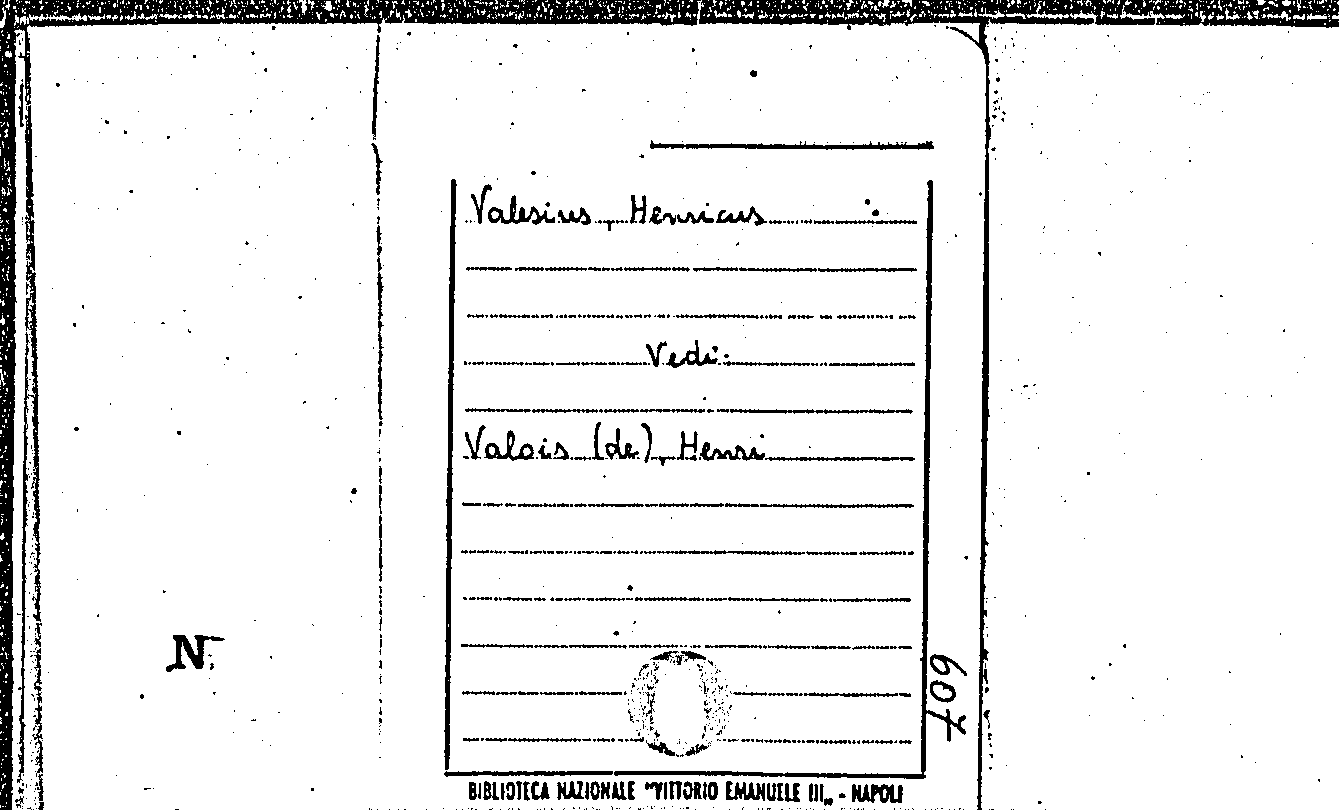 Valesius, Henricus
Vedi:
Valois (de), Henri
N
607
BIBLIOTECA NAZIONALE "VITTORIO EMANUELE III„ - NAPOLI